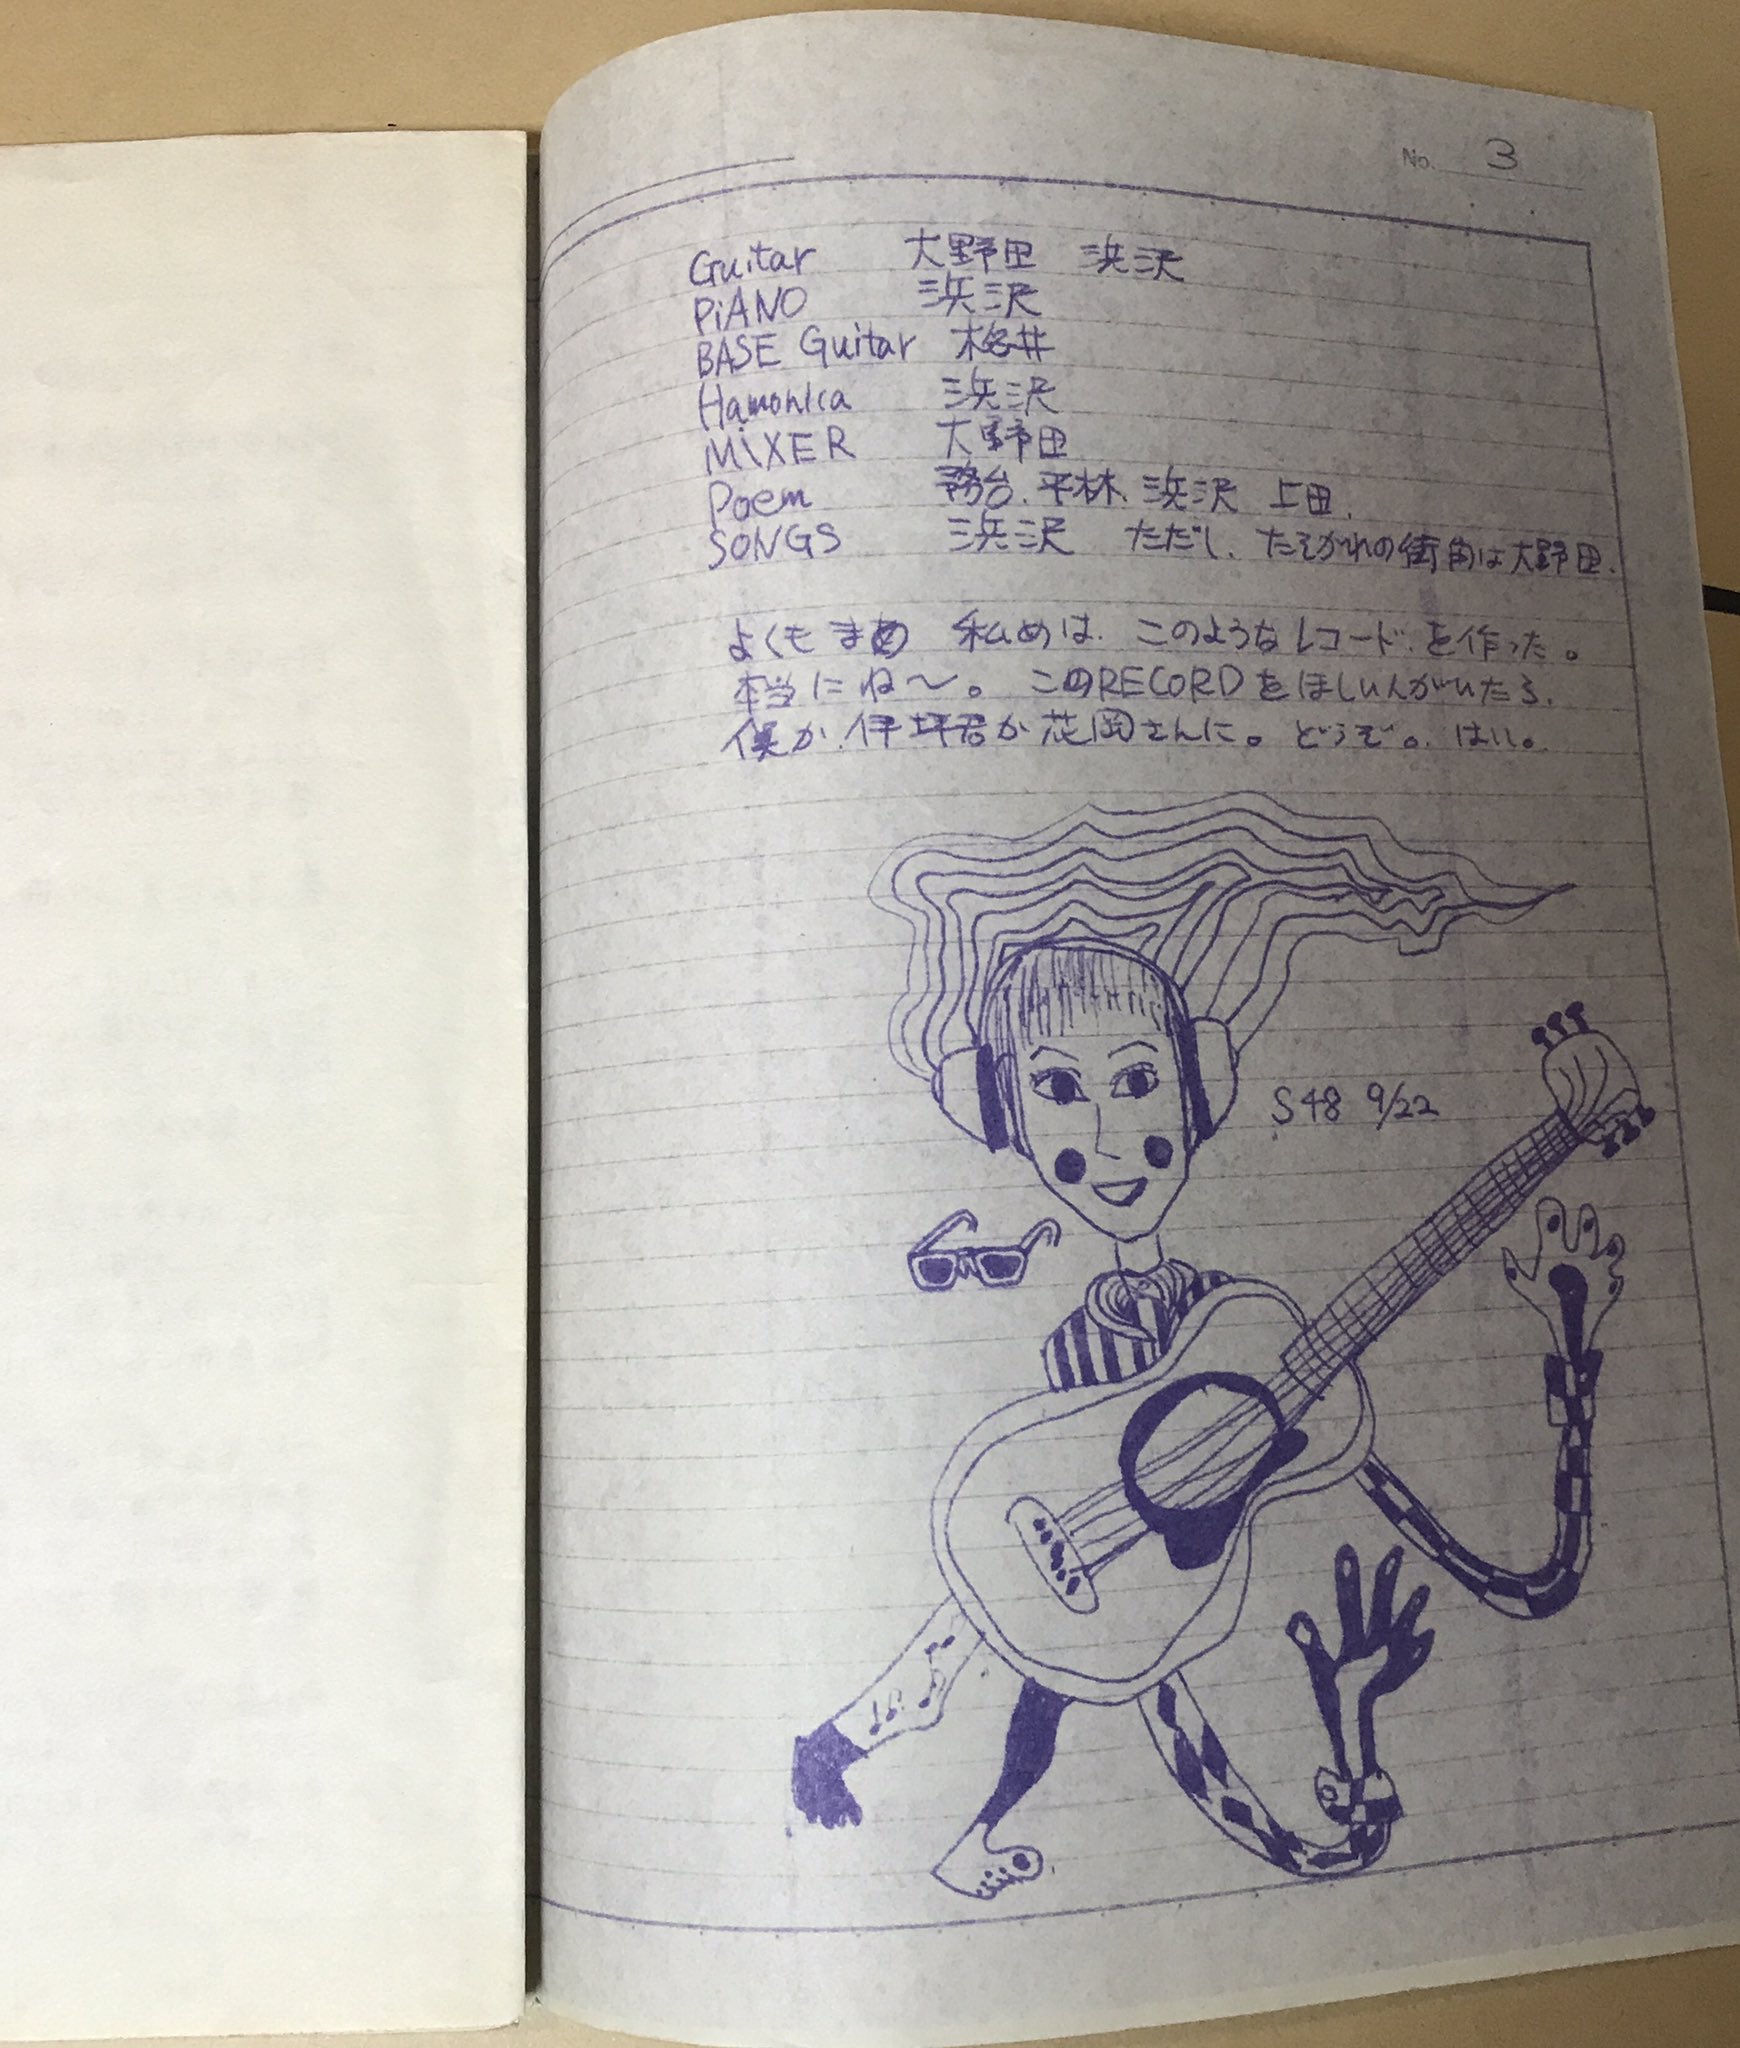 No. 3
Guitar 大野田 浜沢
PiANO 浜沢
BASE Guitar 井
Hamonica 浜沢
MiXER 大野田
Poem 務台、平林、浜沢 上田.
SONGS 浜沢 ただし、たそがれの街角は大野田.
よくもまぁ 私めは、このようなレコードを作った。
本当にね〜。このRECORDをほしい人がいたら、
僕か、伊坪君か花岡さんに。どうぞ。はい。
S48 9/22